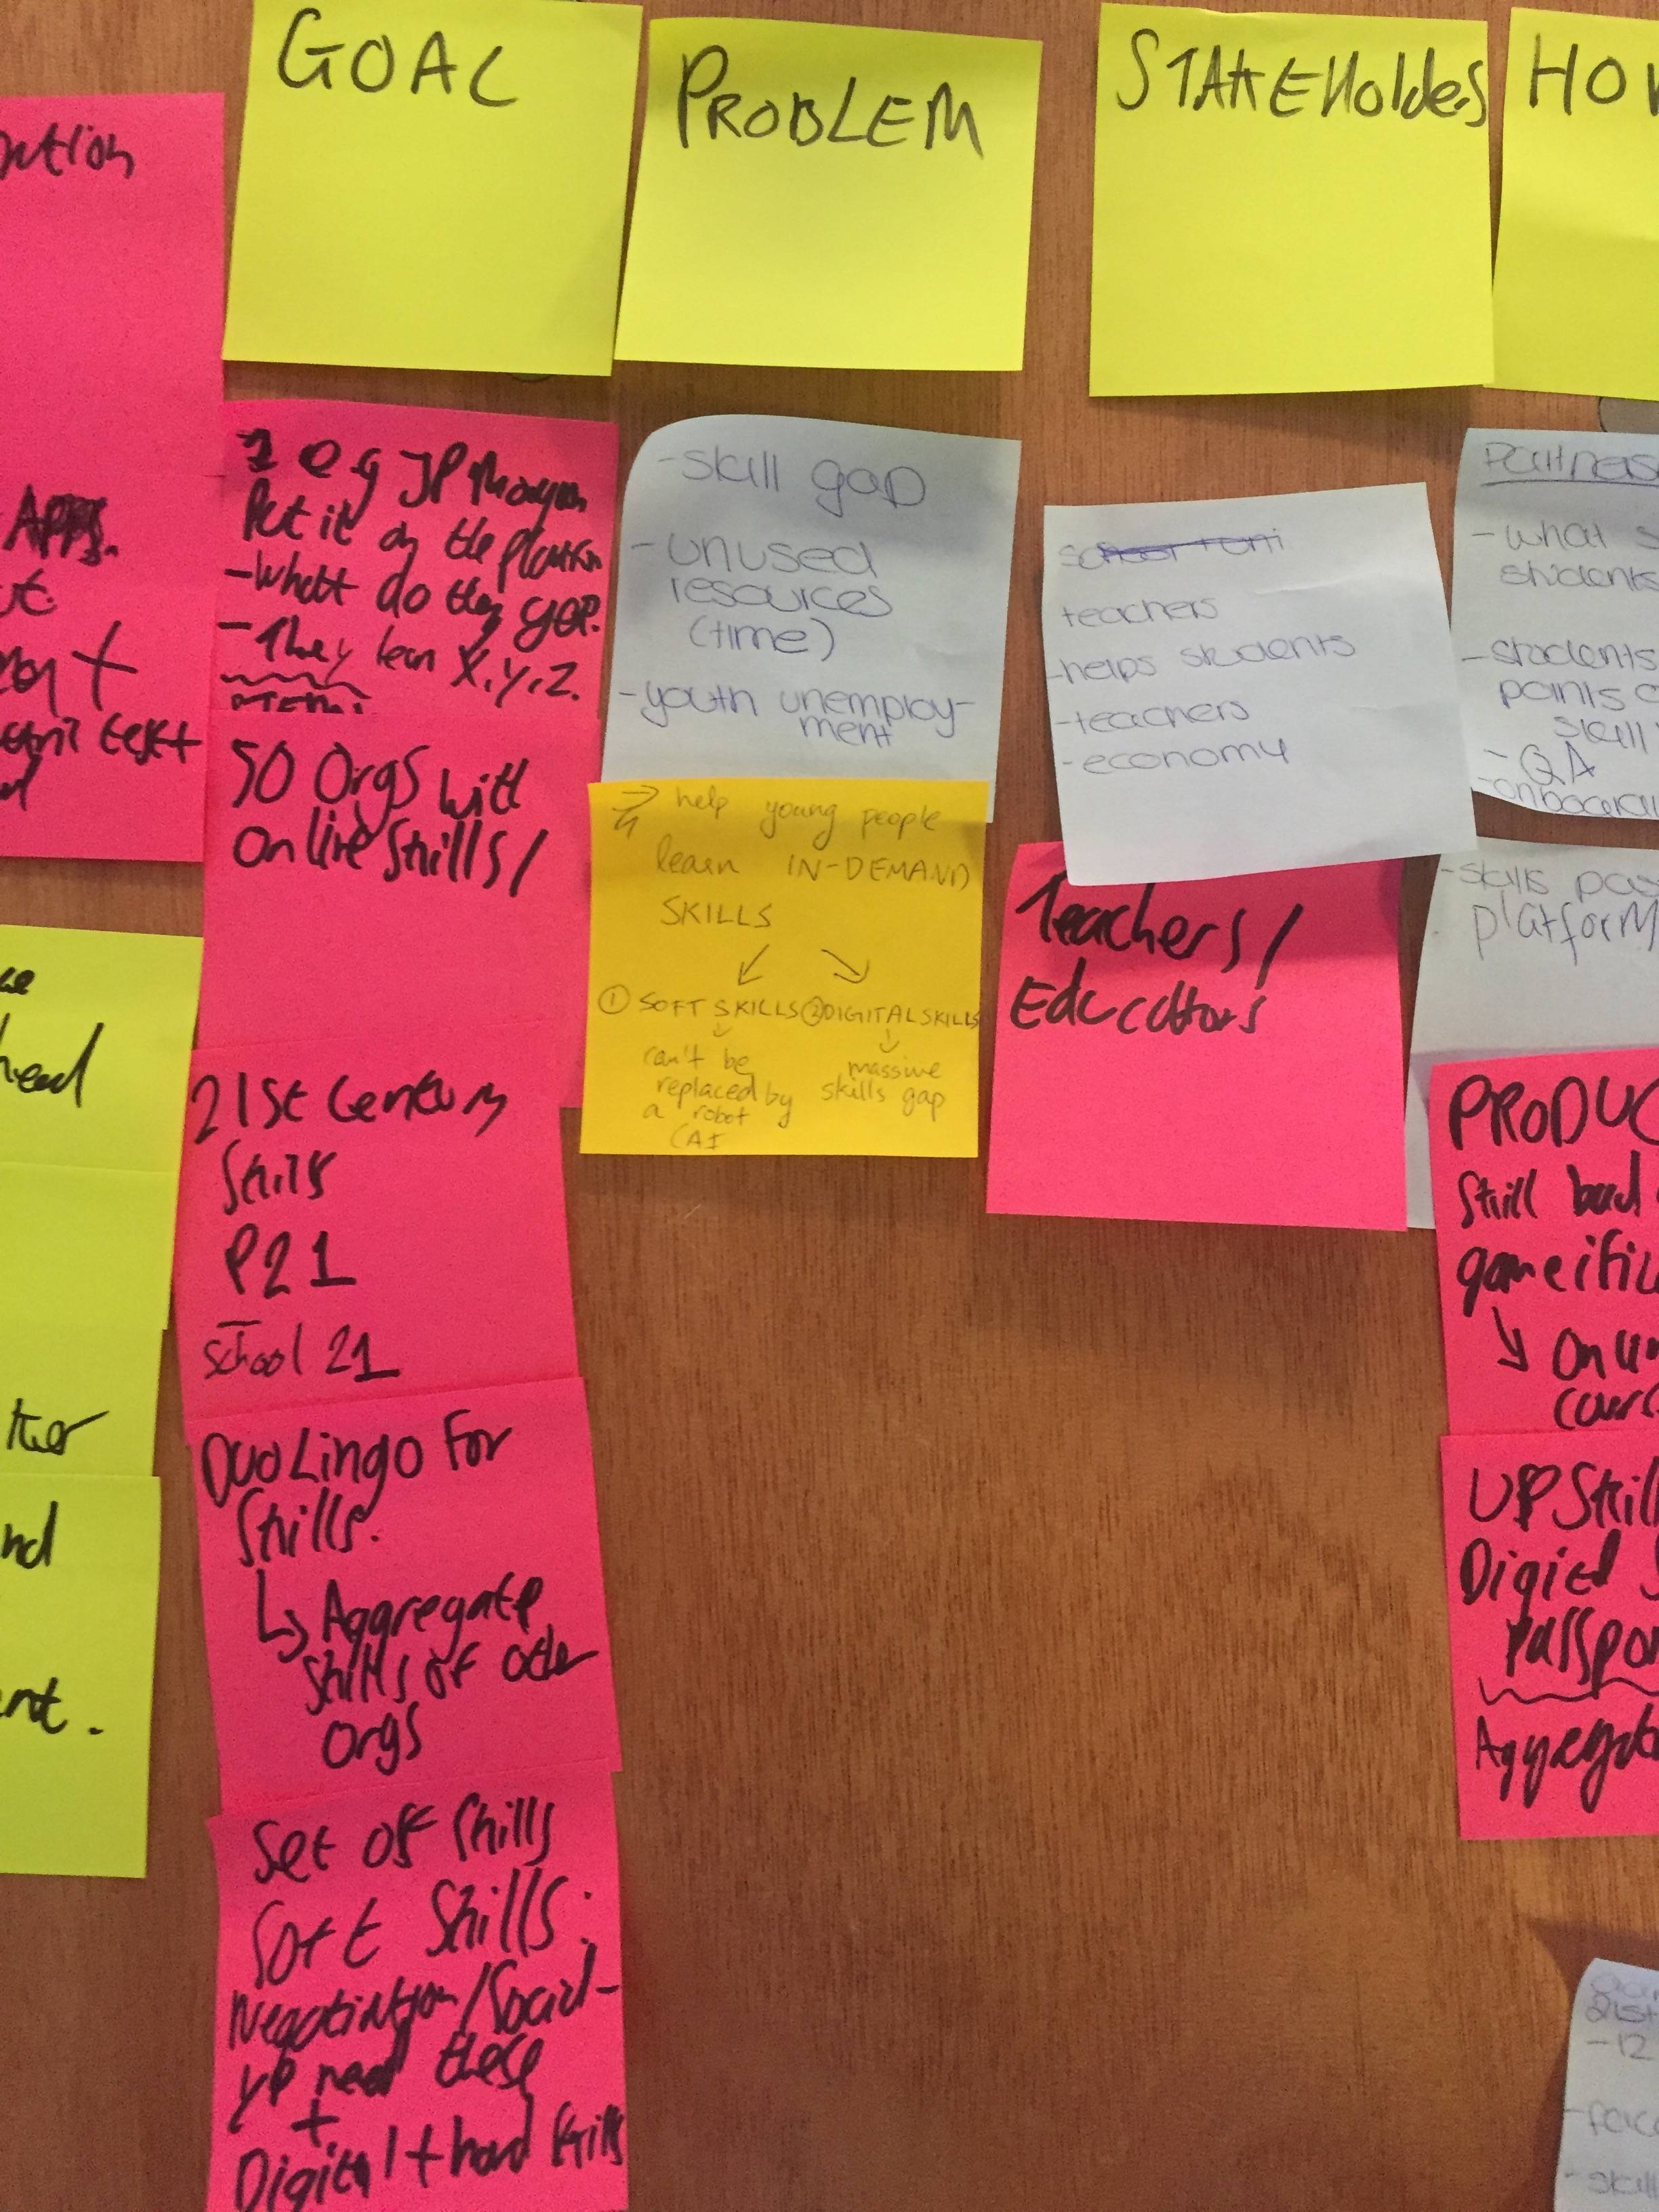 GOAL
PROBLEM
STAKEHOLDERS
HOW
APPS.
text
head
nd
1 e.g JP Morgan
Put it on the platform
-What do they
-They lean X,Y,Z.
50 Orgs with
Online Skills/
21st Century
Skills
P21
School 21
DuoLingo For
Skills.
↳ Aggregate
Skills of other
Orgs
Set of Skills
Soft Skills:
Negotiation/Social-
YP need these
+
Digital + hard Skills
-skill gap
-unused
resources
(time)
-youth unemploy-
ment
→ help young people
learn IN-DEMAND
SKILLS
① SOFT SKILLS ② DIGITAL SKILLS
can't be
replaced by
a robot
(AI
massive
skills gap
teachers
-helps students
-teachers
-economy
Teachers/
Educators
-what s
students
-students
points
skill
- QA
-skills pas
platform
PRODUC
Skill
gameific
↘
UPSkill
Digital S
Passpor
Aggregat
21st
-12
-skill